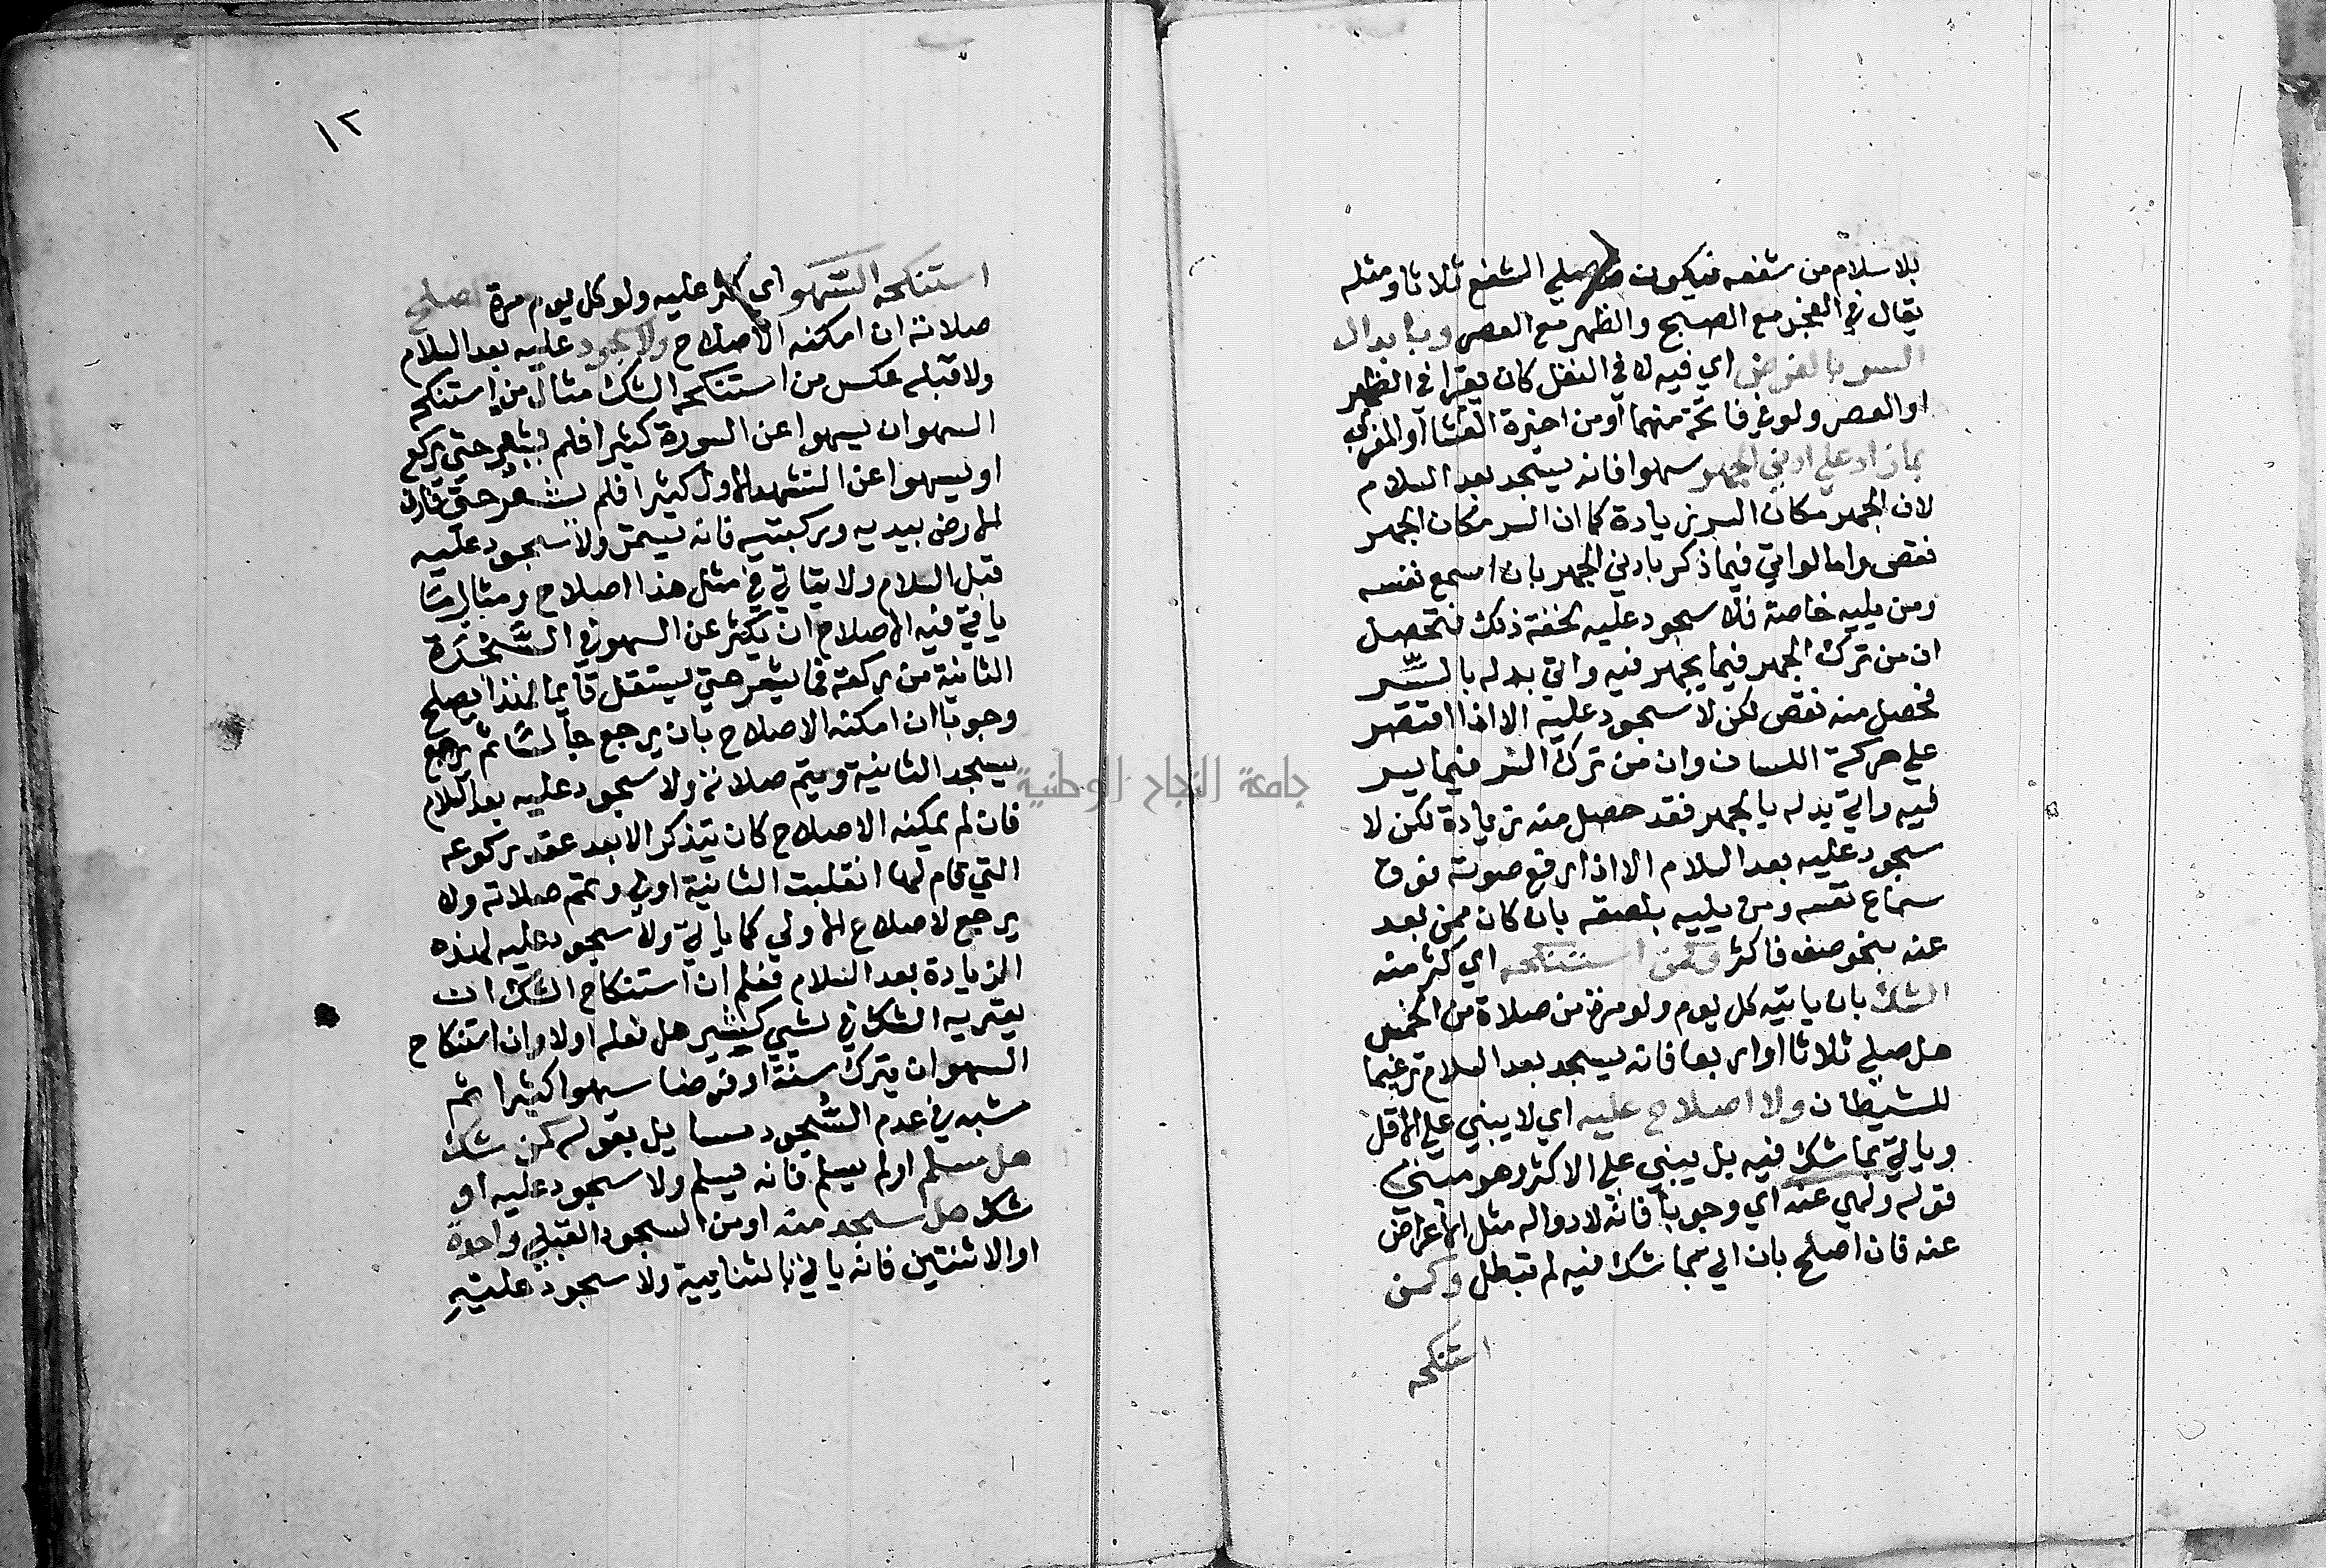 بلا سلام من شفعه فيكون صلي الشفع ثلاثا ومثله
يقال في الفجر مع الصبح والظهر مع العصر وبابدال
السر بالفرض اي فيه لا في النفل كان يقرا في الظهر
او العصر ولو في فاتحة منهما او من اخيرة العشا او المغرب
بما زاد علي ادني الجهر سهوا فانه يسجد بعد السلام
لان الجهر مكان السر زيادة كما ان السر مكان الجهر
نقص واما لو اتي فيما ذكر بادني الجهر بان اسمع نفسه
ومن يليه خاصة فلا سجود عليه لخفة ذلك فتحصل
ان من ترك الجهر فيما يجهر فيه واتي بدله بالسر
فحصل منه نقص لكن لا سجود عليه الا اذا اقتصر
علي حركة اللسان وان من ترك السر فيما يسر
فيه واتي بدله بالجهر فقد حصل منه زيادة لكن لا
سجود عليه بعد السلام الا اذا رفع صوته فوق
سماع نفسه ومن يليه بلصقه بان كان ممن بعد
عنه بنحو صف فاكثر وكمن استنكحه اي كثر منه
الشك بان ياتيه كل يوم ولو مرة من صلاة من الخمس
هل صلي ثلاثا او اربعا فانه يسجد بعد السلام ترغيما
للشيطان ولا اصلاح عليه اي لا يبني علي الاقل
وياتي بما شك فيه بل يبني علي الاكثر وهو مبني
قوله ولهي عنه اي وجوبا فانه لا دوا له مثل الاعراض
عنه فان اصلح بان اتي بما شك فيه لم تبطل وكمن
استنكحه
١٢
استنكحه السهو اي كثر عليه ولو كل يوم مرة اصلح
صلاته ان امكنه الاصلاح ولا سجود عليه بعد السلام
ولا قبله عكس من استنكحه الشك مثال من استنكحه
السهو ان يسهوا عن السورة كثيرا فلم يشعر حتي يركع
او يسهوا عن التشهد الاول كثيرا فلم يشعر حتي فارق
الارض بيديه وركبتيه فانه يستمر ولا سجود عليه
قبل السلام ولا يتاتي في مثل هذا اصلاح ومثال ما
ياتي فيه الاصلاح ان يكثر عن السهو في السجدة
الثانية من ركعة فما يشعر حتي يستقل قايما فهذا يصلح
وجوبا ان امكنه الاصلاح بان يرجع جالسا ثم يرجع
يسجد الثانية ويتم صلاته ولا سجود عليه بعد السلام
فان لم يمكنه الاصلاح كان يتذكر الا بعد عقد ركوعه
التي قام لها انقلبت الثانية اولي وتتم صلاته ولا
يرجع لاصلاح الاولي كما ياتي ولا سجود عليه لهذه
الزيادة بعد السلام فعلم ان استنكاح الشك ان
يعتريه الشك في شيي كثير هل فعله اولا وان استنكاح
السهو ان يترك سنة او فرضا سهوا كثيرا ثم
شبه في عدم السجود مسايل بقوله كمن شك
هل سلم او لم يسلم فانه يسلم ولا سجود عليه او
شك هل سجد منه او من السجود القبلي واحدة
او الاثنتين فانه ياتي بالثانيية ولا سجود عليه
جامعة النجاح الوطنية